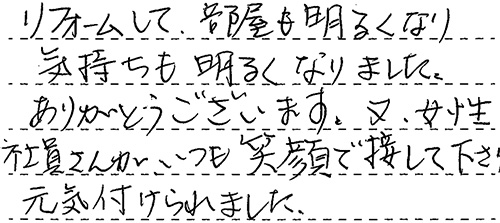 リフォームして、部屋も明るくなり
気持ちも明るくなりました。
ありがとうございます。又、女性
社員さんが、いつも笑顔で接して下さり
元気付けられました、